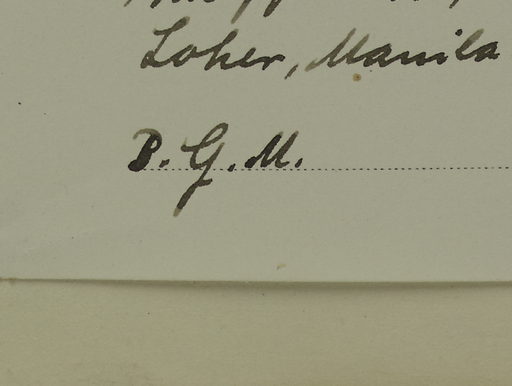 Loher, Manila
P. G. M.